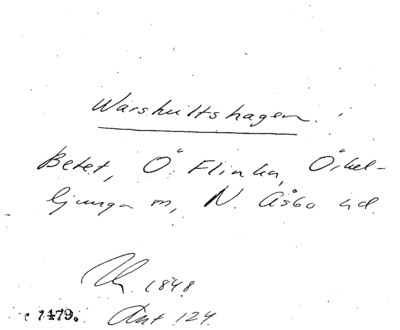 Warshultshagen.
Betet, Ö. Flinka, Örkel-
ljunga sn, N. Åsbo hd.
1848.
1479. Akt 124.